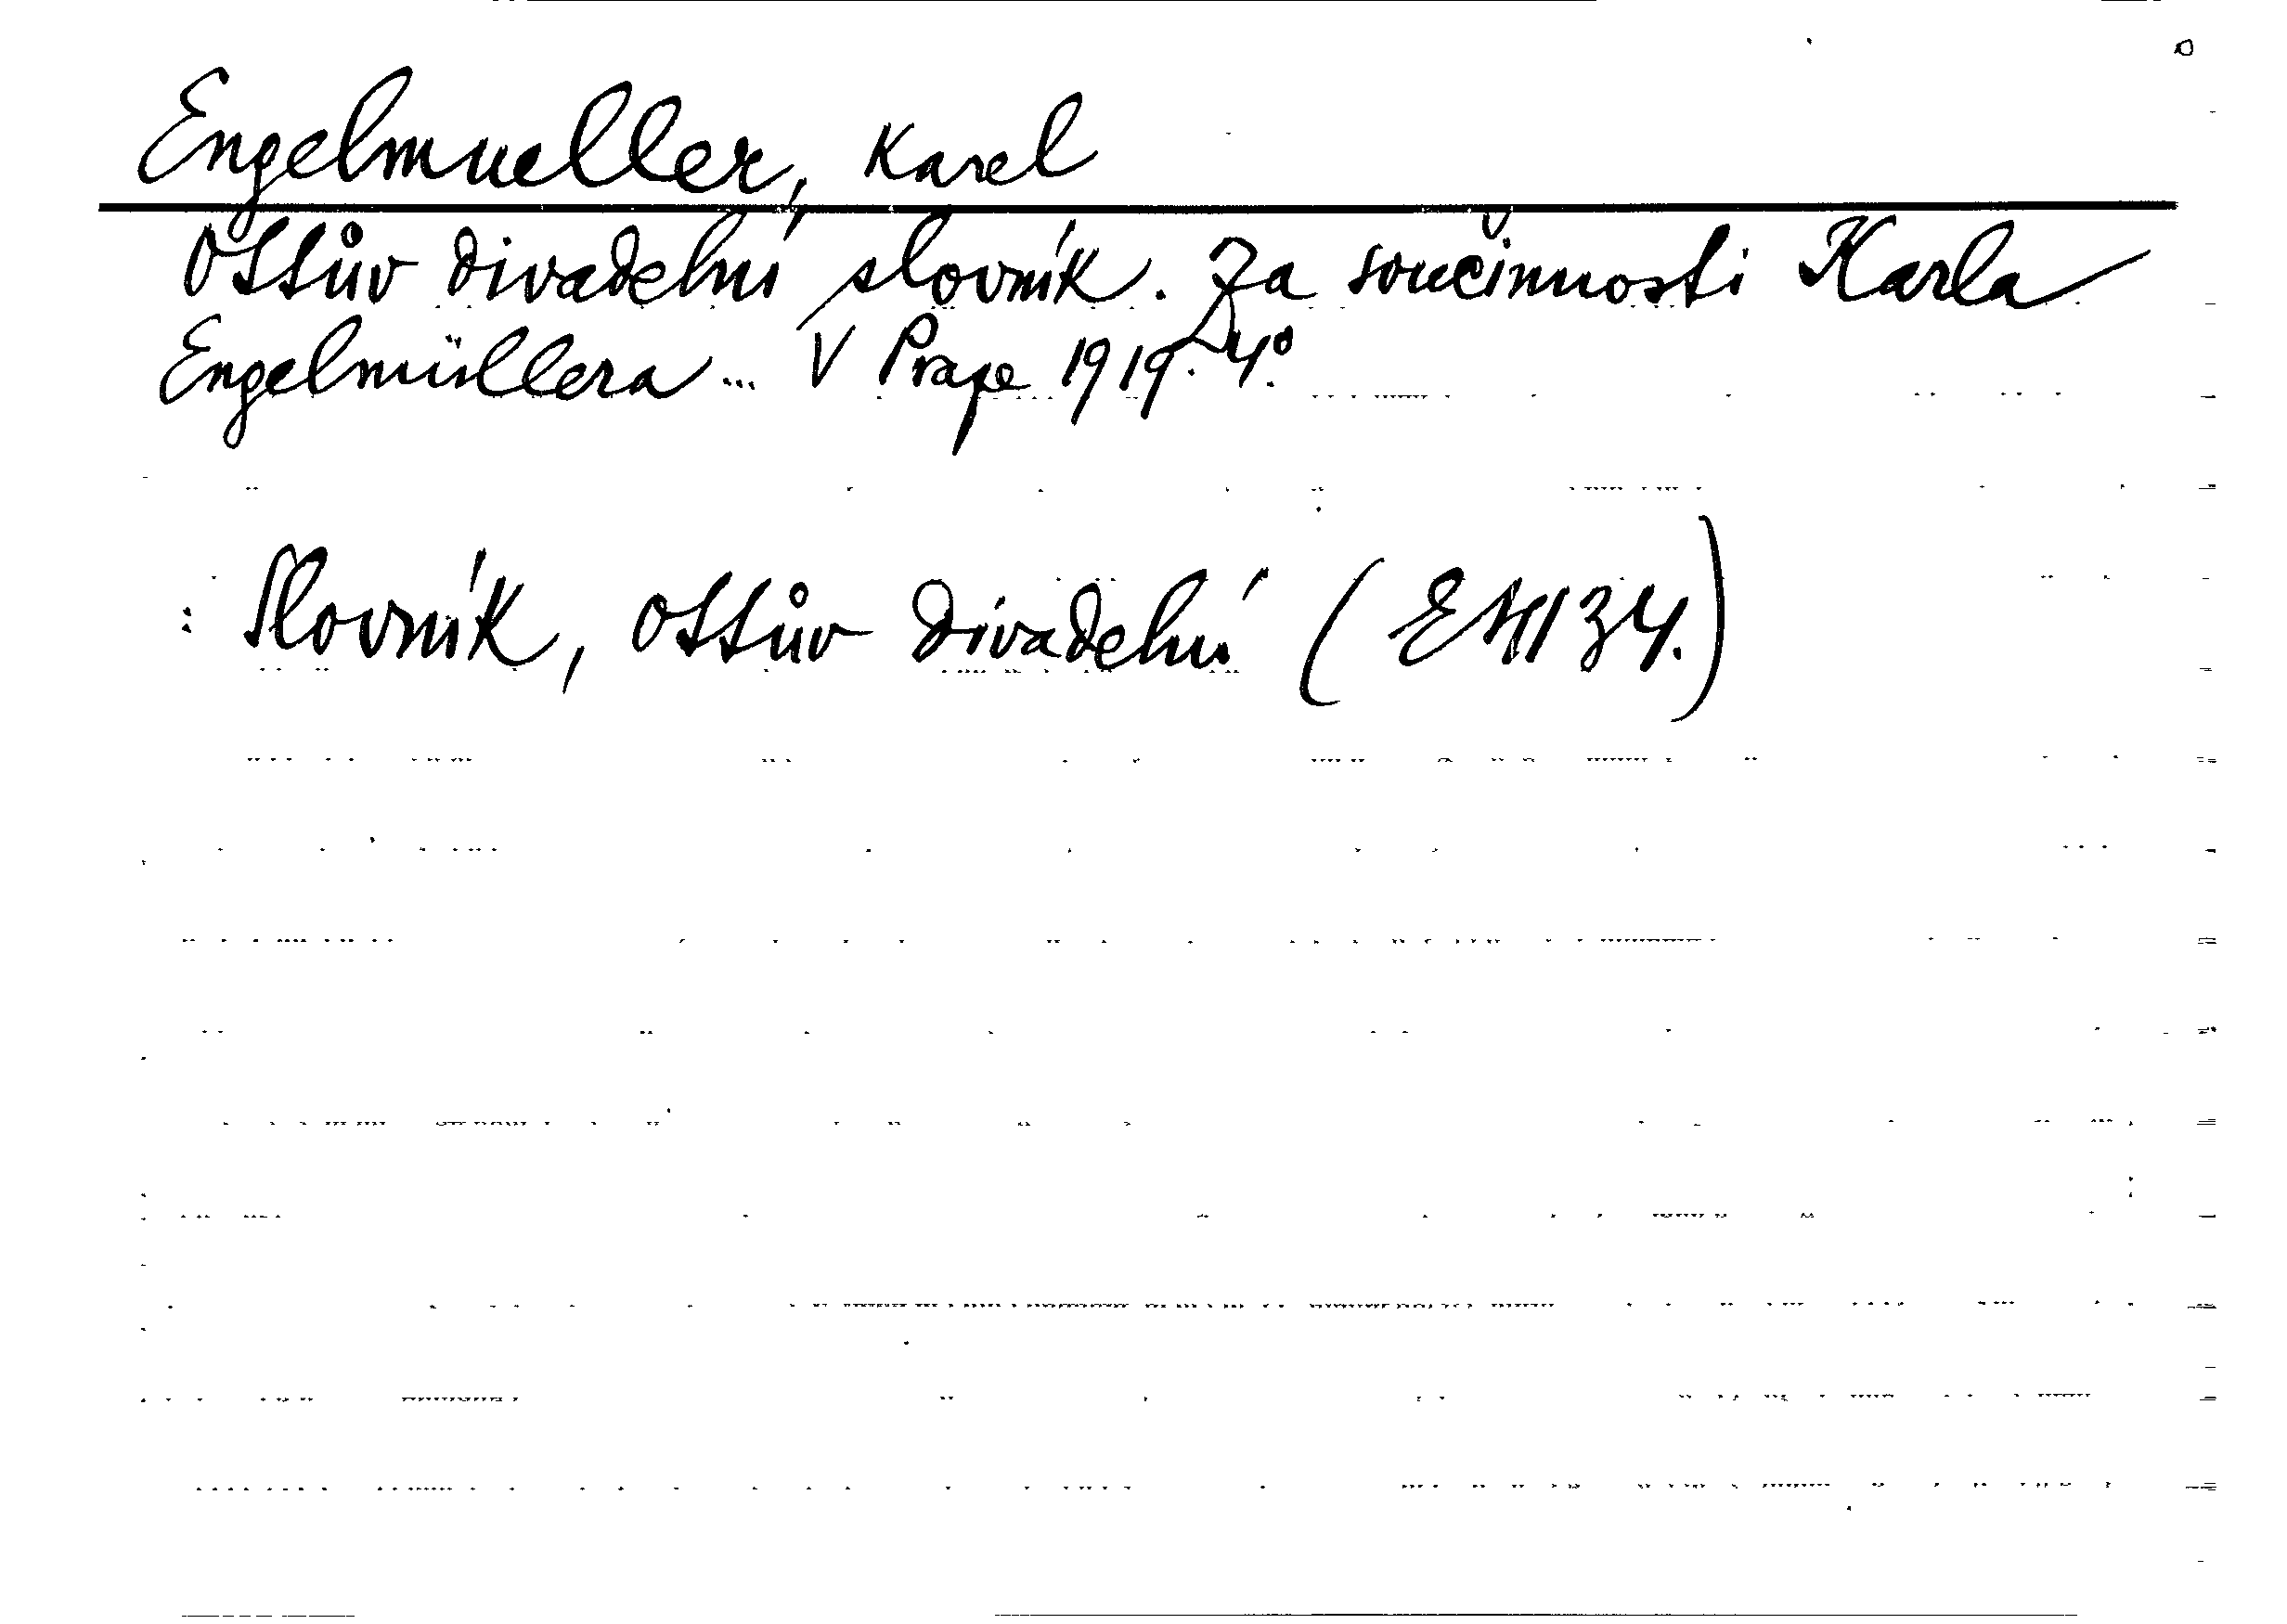 Engelmueller, Karel
Ottův divadelní slovník. Za součinnosti Karla
Engelmüllera... V Praze 1919. 4°.
: Slovník, Ottův divadelní (